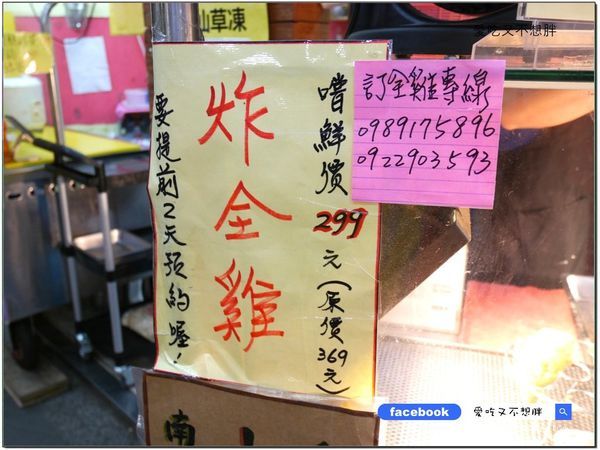 愛吃又不想胖
仙草凍
訂全雞專線
0989175896
0922903593
嚐鮮價299元(原價369元)
炸全雞
要提前2天預約喔!
南
facebook 愛吃又不想胖